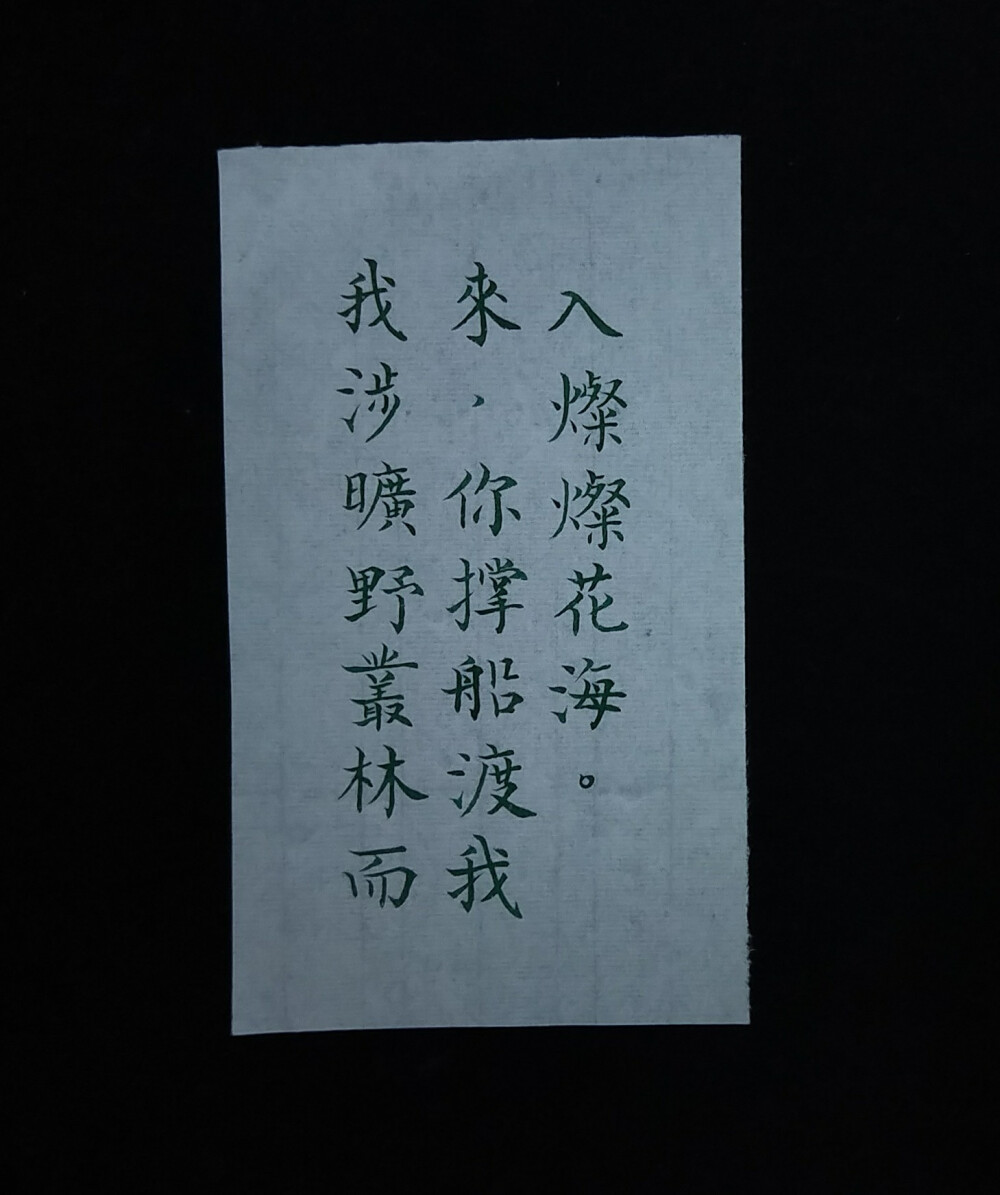 我涉曠野叢林而
來，你撑船渡我
入燦燦花海。